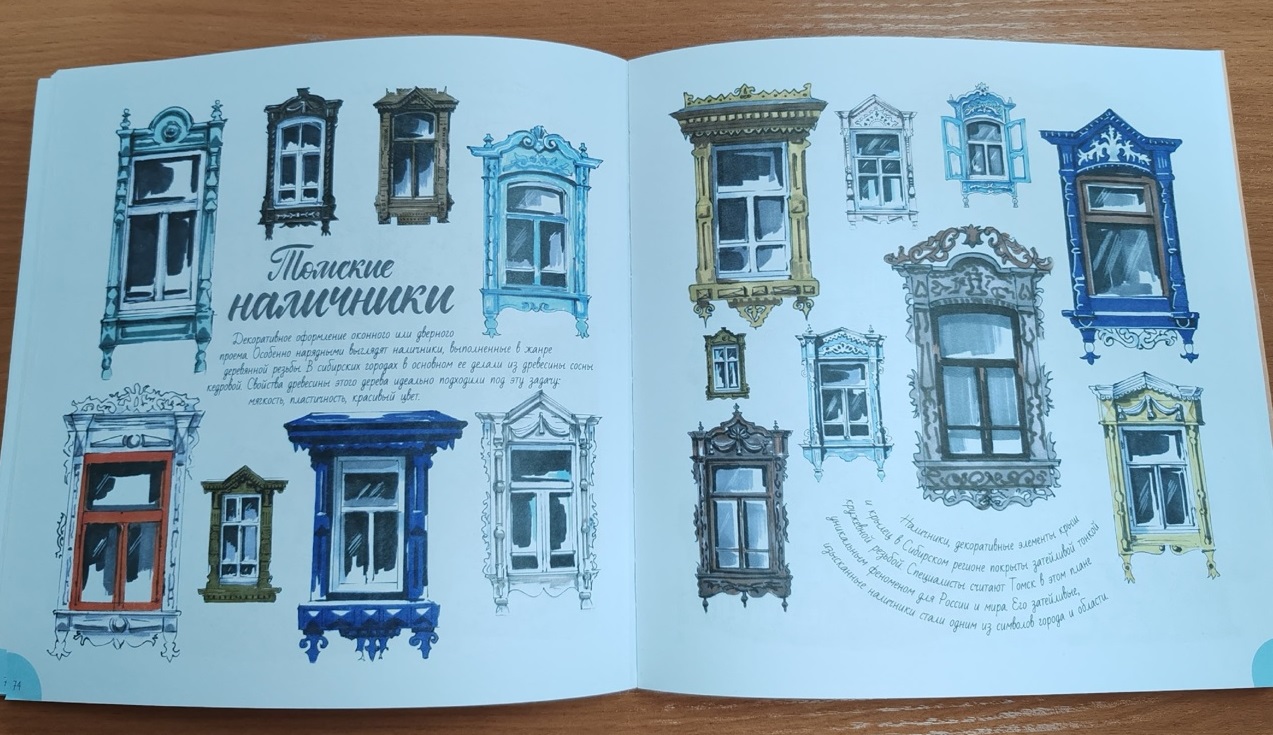 Томские
наличники
Декоративное оформление оконного или дверного
проема. Особенно нарядными выглядят наличники, выполненные в жанре
деревянной резьбы. В сибирских городах в основном ее делали из древесины сосны
кедровой. Свойства древесины этого дерева идеально подходили под эту задачу:
мягкость, пластичность, красивый цвет.
74
Наличники, декоративные элементы крыш
и крылец в Сибирском регионе покрыты затейливой тонкой
кружевной резьбой. Специалисты считают Томск в этом плане
уникальным феноменом для России и мира. Его затейливые,
изысканные наличники стали одним из символов города и области